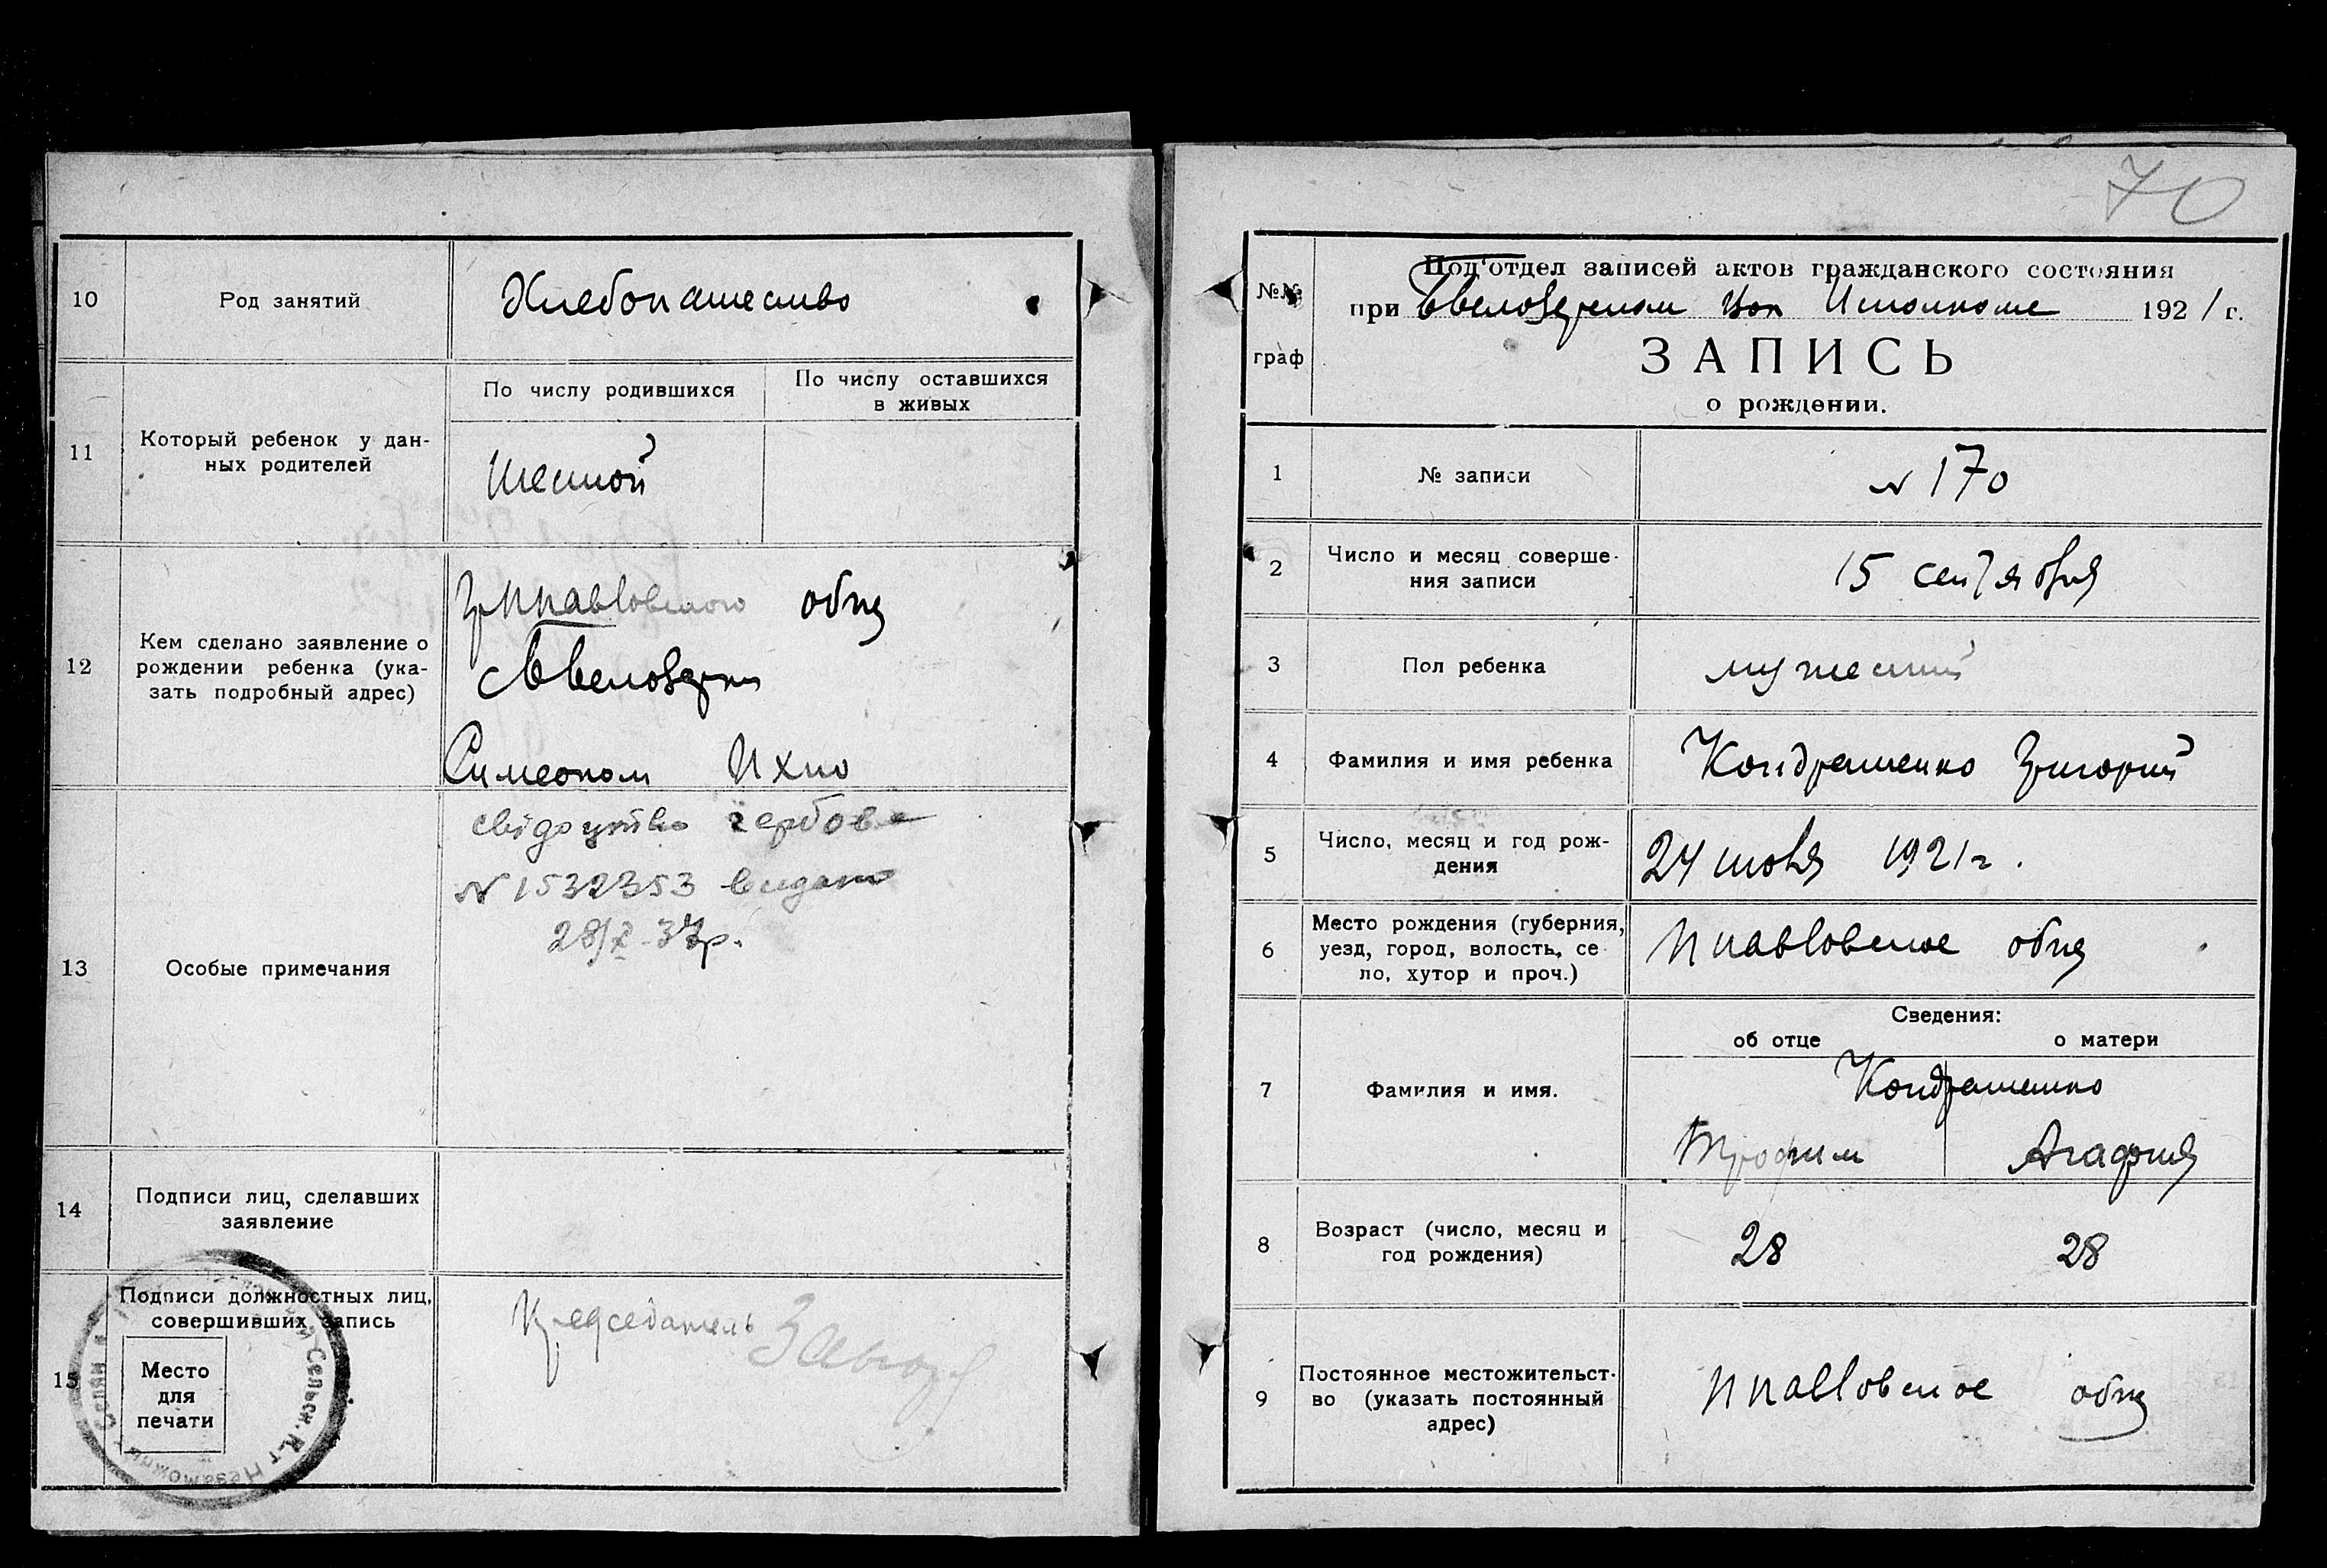 10
Род занятий
Хлебопашество
11
Который ребенок у дан-
ных родителей
По числу родившихся
По числу оставшихся
в живых
шестой
12
Кем сделано заявление о
рождении ребенка (ука-
зать подробный адрес)
общ
Симеоном Ихно
13
Особые примечания
свідоцтво гербове
N 1532353 видано
28/X-37р.
14
Подписи лиц, сделавших
заявление
15
Подписи должностных лиц,
совершивших запись
Место
для
печати
Сельск. К-т Незаможних Селян
Председатель
70
№№
граф
Под'отдел записей актов гражданского состояния
при Вол Исполкоме 1921 г.
ЗАПИСЬ
о рождении.
1
№ записи
N 170
2
Число и месяц соверше-
ния записи
15 сентября
3
Пол ребенка
мужеский
4
Фамилия и имя ребенка
Кондрашенко Григорий
5
Число, месяц и год рож-
дения
24 1921 г.
6
Место рождения (губерния,
уезд, город, волость, се-
ло, хутор и проч.)
Ипавловское общ
7
Фамилия и имя.
Сведения:
об отце
о матери
Кондрашенко
Трофим
Агафия
8
Возраст (число, месяц и
год рождения)
28
28
9
Постоянное местожительст-
во (указать постоянный
адрес)
Ипавловское общ